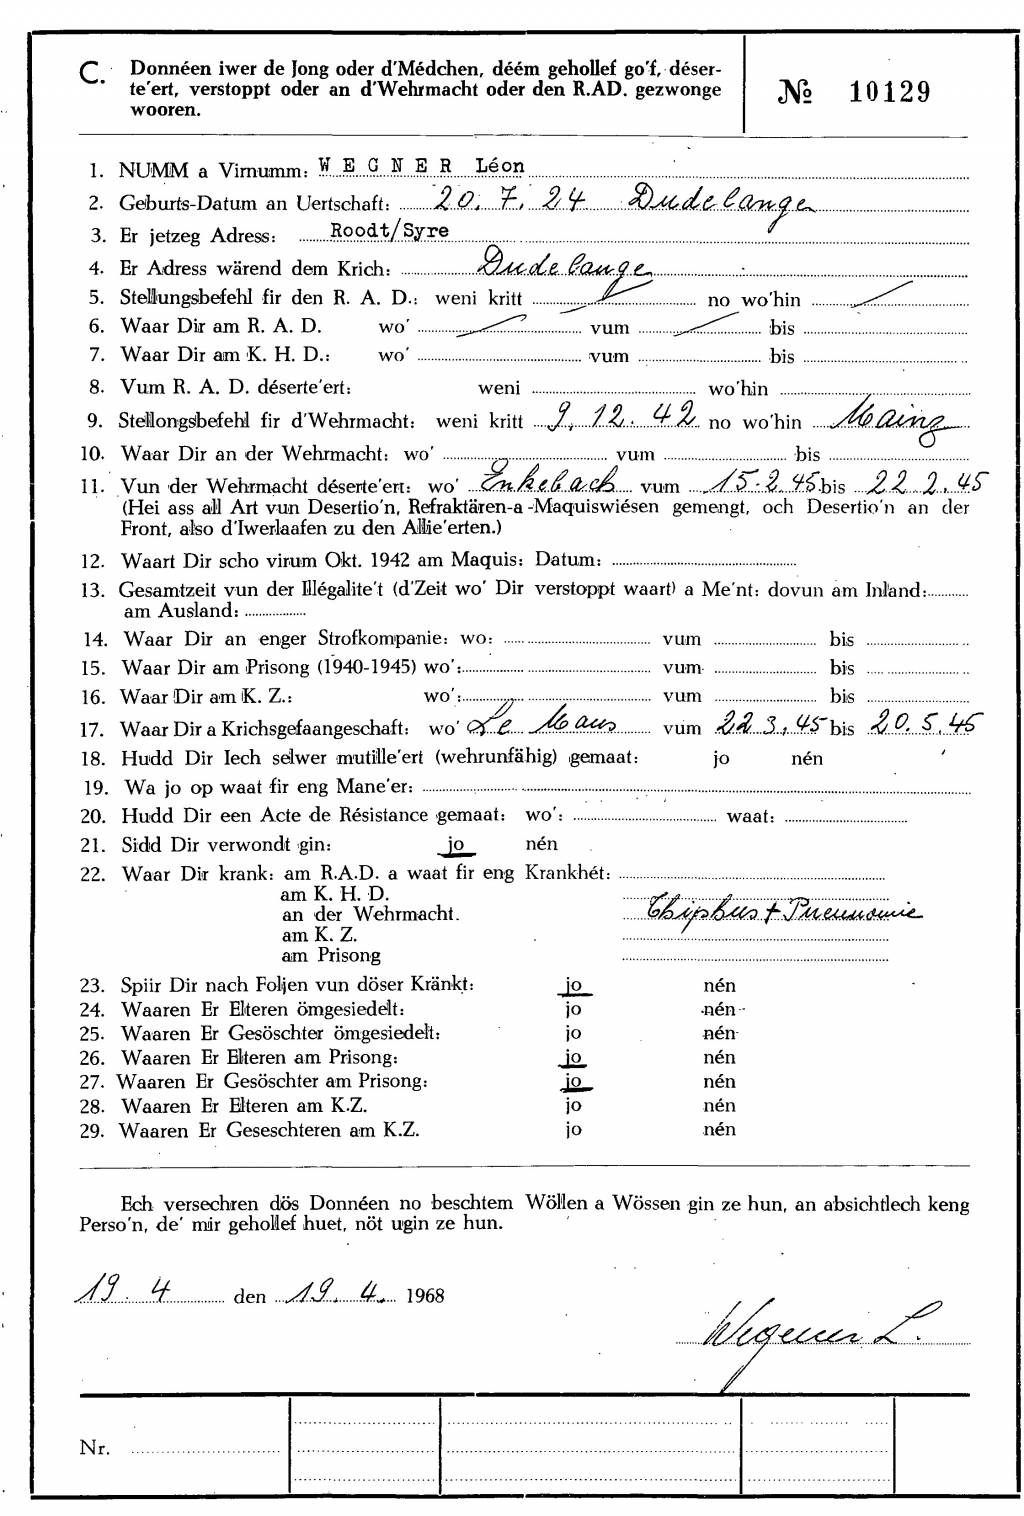 C. Donnéen iwer de Jong oder d'Médchen, déém gehollef go'f, déser-
te'ert, verstoppt oder an d'Wehrmacht oder den R.AD. gezwonge
wooren.
№ 10129
1. NUMM a Virnumm: WEGNER Léon
2. Geburts-Datum an Uertschaft: 20. 7. 24 Dudelange
3. Er jetzeg Adress: Roodt/Syre
4. Er Adress wärend dem Krich: Dudelange
5. Stellungsbefehl fir den R. A. D.: weni kritt / no wo'hin /
6. Waar Dir am R. A. D. wo' / vum / bis
7. Waar Dir am K. H. D.: wo' vum bis
8. Vum R. A. D. déserte'ert: weni wo'hin
9. Stellongsbefehl fir d'Wehrmacht: weni kritt 9. 12. 42 no wo'hin Mainz
10. Waar Dir an der Wehrmacht: wo' vum bis
11. Vun der Wehrmacht déserte'ert: wo' Enkebach vum 15.2.45 bis 22 2.45
(Hei ass all Art vun Desertio'n, Refraktären-a -Maquiswiésen gemengt, och Desertio'n an der
Front, also d'Iwerlaafen zu den Allie'erten.)
12. Waart Dir scho virum Okt. 1942 am Maquis: Datum:
13. Gesamtzeit vun der Illégalite't (d'Zeit wo' Dir verstoppt waart) a Me'nt: dovun am Inland:
am Ausland:
14. Waar Dir an enger Strofkompanie: wo: vum bis
15. Waar Dir am Prisong (1940-1945) wo': vum bis
16. Waar Dir am K. Z.: wo': vum bis
17. Waar Dir a Krichsgefaangeschaft: wo' Le Mans vum 22 3.45 bis 20.5.45
18. Hudd Dir Iech selwer mutille'ert (wehrunfähig) gemaat: jo nén
19. Wa jo op waat fir eng Mane'er:
20. Hudd Dir een Acte de Résistance gemaat: wo': waat:
21. Sidd Dir verwondt gin: jo nén
22. Waar Dir krank: am R.A.D. a waat fir eng Krankhét:
am K. H. D.
an der Wehrmacht. Thiphus + Pneumonie
am K. Z.
am Prisong
23. Spiir Dir nach Foljen vun döser Kränkt: jo nén
24. Waaren Er Elteren ömgesiedelt: jo nén
25. Waaren Er Gesöschter ömgesiedelt: jo nén
26. Waaren Er Elteren am Prisong: jo nén
27. Waaren Er Gesöschter am Prisong: jo nén
28. Waaren Er Elteren am K.Z. jo nén
29. Waaren Er Geseschteren am K.Z. jo nén
Ech versechren dös Donnéen no beschtem Wöllen a Wössen gin ze hun, an absichtlech keng
Perso'n, de' mir gehollef huet, nöt ugin ze hun.
19. 4 den 19. 4. 1968
Wegener L.
Nr.